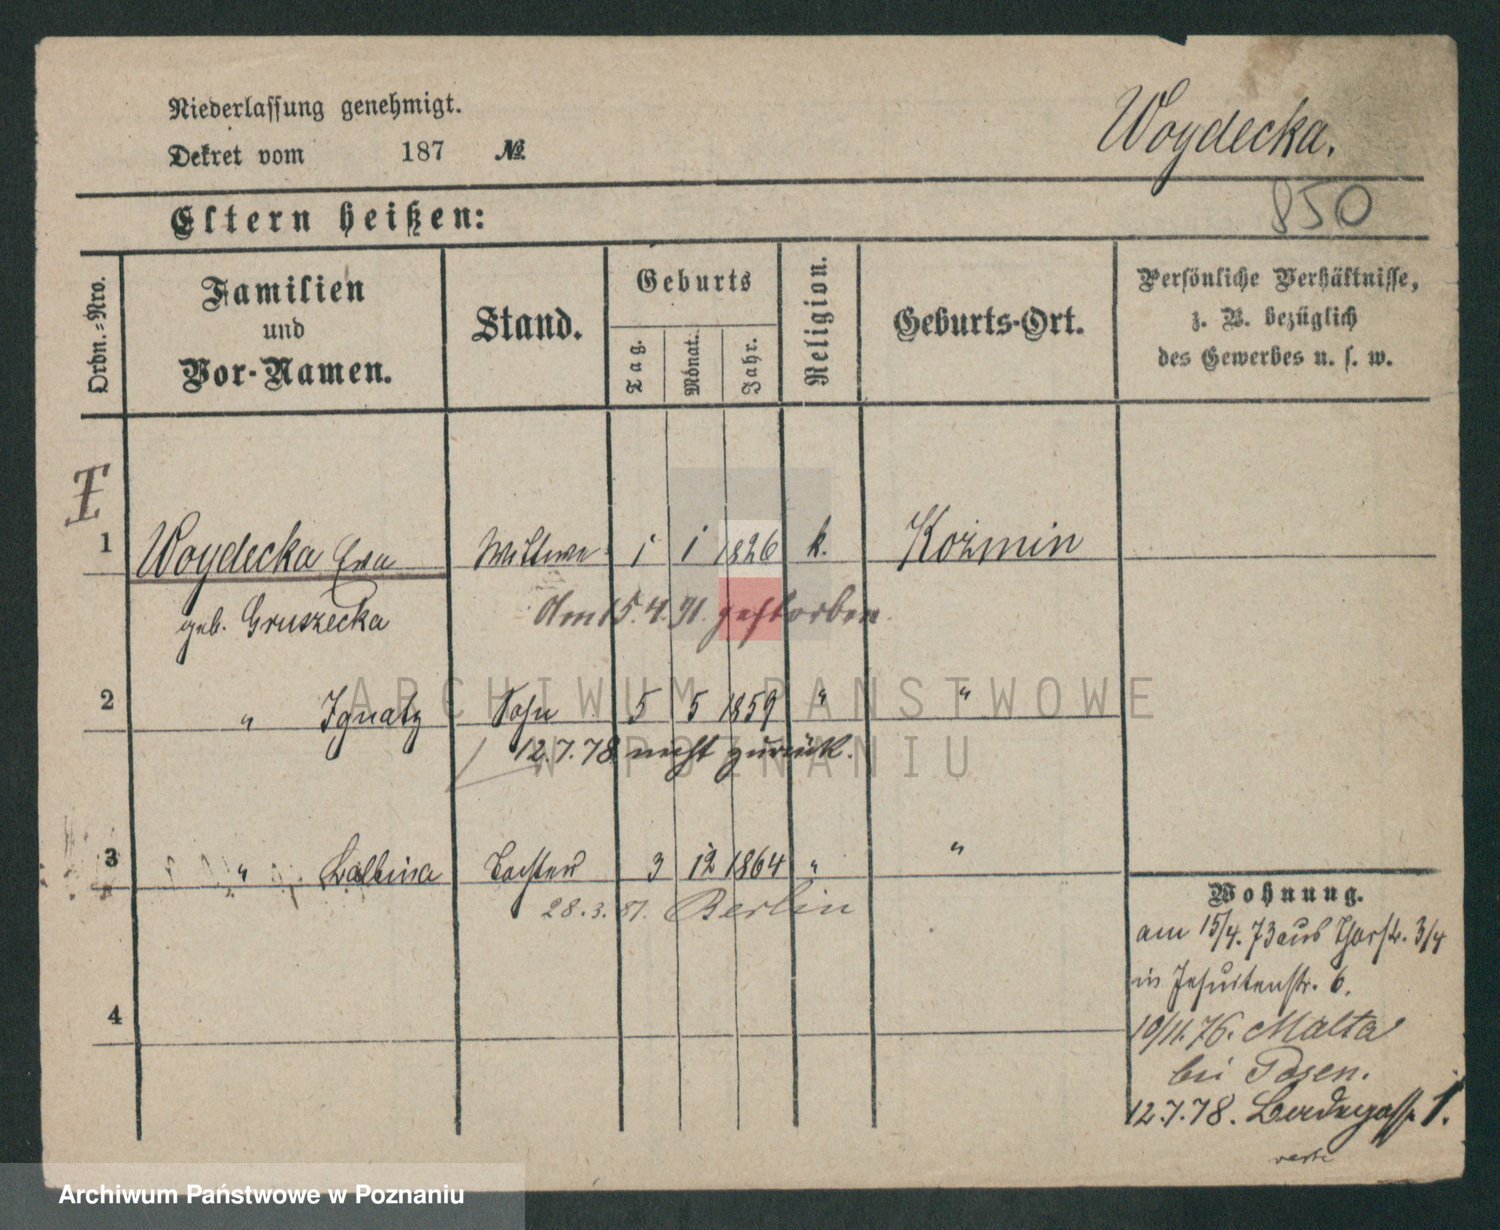 Niederlassung genehmigt.
Dekret vom 187 №
Woydecka.
850
Eltern heißen:
Ordn.-Nro.
Familien
und
Vor-Namen.
Stand.
Geburts
Tag.
Monat.
Jahr.
Religion.
Geburts-Ort.
Persönliche Verhältnisse,
z. B. bezüglich
des Gewerbes u. s. w.
1 Woydecka Eva Wittwe 1 1 1826 k. Kozmin
geb. Gruszecka Am 15.4.91. gestorben.
2 " Ignatz Sohn 5 5 1859 " "
12.7.78 nicht zurück.
3 " Balbina Tochter 3 12 1864 " "
28.3.81. Berlin
4
Wohnung.
am 15/4. 73 aus Thorstr. 3/4
in Jesuitenstr. 6.
10/11. 76. Malta
bei Posen.
12.7.78. 1.
ARCHIWUM PAŃSTWOWE
W POZNANIU
Archiwum Państwowe w Poznaniu